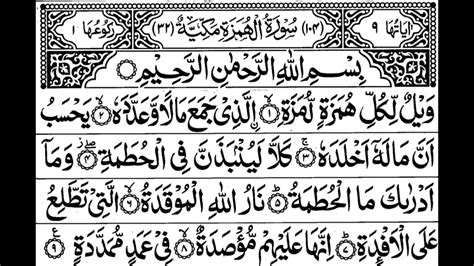 اٰيَاتُهَا ٩ (١٠٤) سُوْرَةُ الْهُمَزَةِ مَكِّيَّةٌ (٣٢) رُكُوْعُهَا ١
بِسْمِ اللّٰهِ الرَّحْمٰنِ الرَّحِيْمِ
وَيْلٌ لِّكُلِّ هُمَزَةٍ لُّمَزَةِ ۙ﴿١﴾ الَّذِيْ جَمَعَ مَالًا وَّعَدَّدَهٗ ۙ﴿٢﴾ يَحْسَبُ
اَنَّ مَالَهٗٓ اَخْلَدَهٗ ۚ﴿٣﴾ كَلَّا لَيُنْۢبَذَنَّ فِي الْحُطَمَةِ ۖ﴿٤﴾ وَمَآ
اَدْرٰىكَ مَا الْحُطَمَةُ ؕ﴿٥﴾ نَارُ اللّٰهِ الْمُوْقَدَةُ ۙ﴿٦﴾ الَّتِيْ تَطَّلِعُ
عَلَى الْاَفْـِٕدَةِ ؕ﴿٧﴾ اِنَّهَا عَلَيْهِمْ مُّؤْصَدَةٌ ۙ﴿٨﴾ فِيْ عَمَدٍ مُّمَدَّدَةٍ ﴿٩﴾